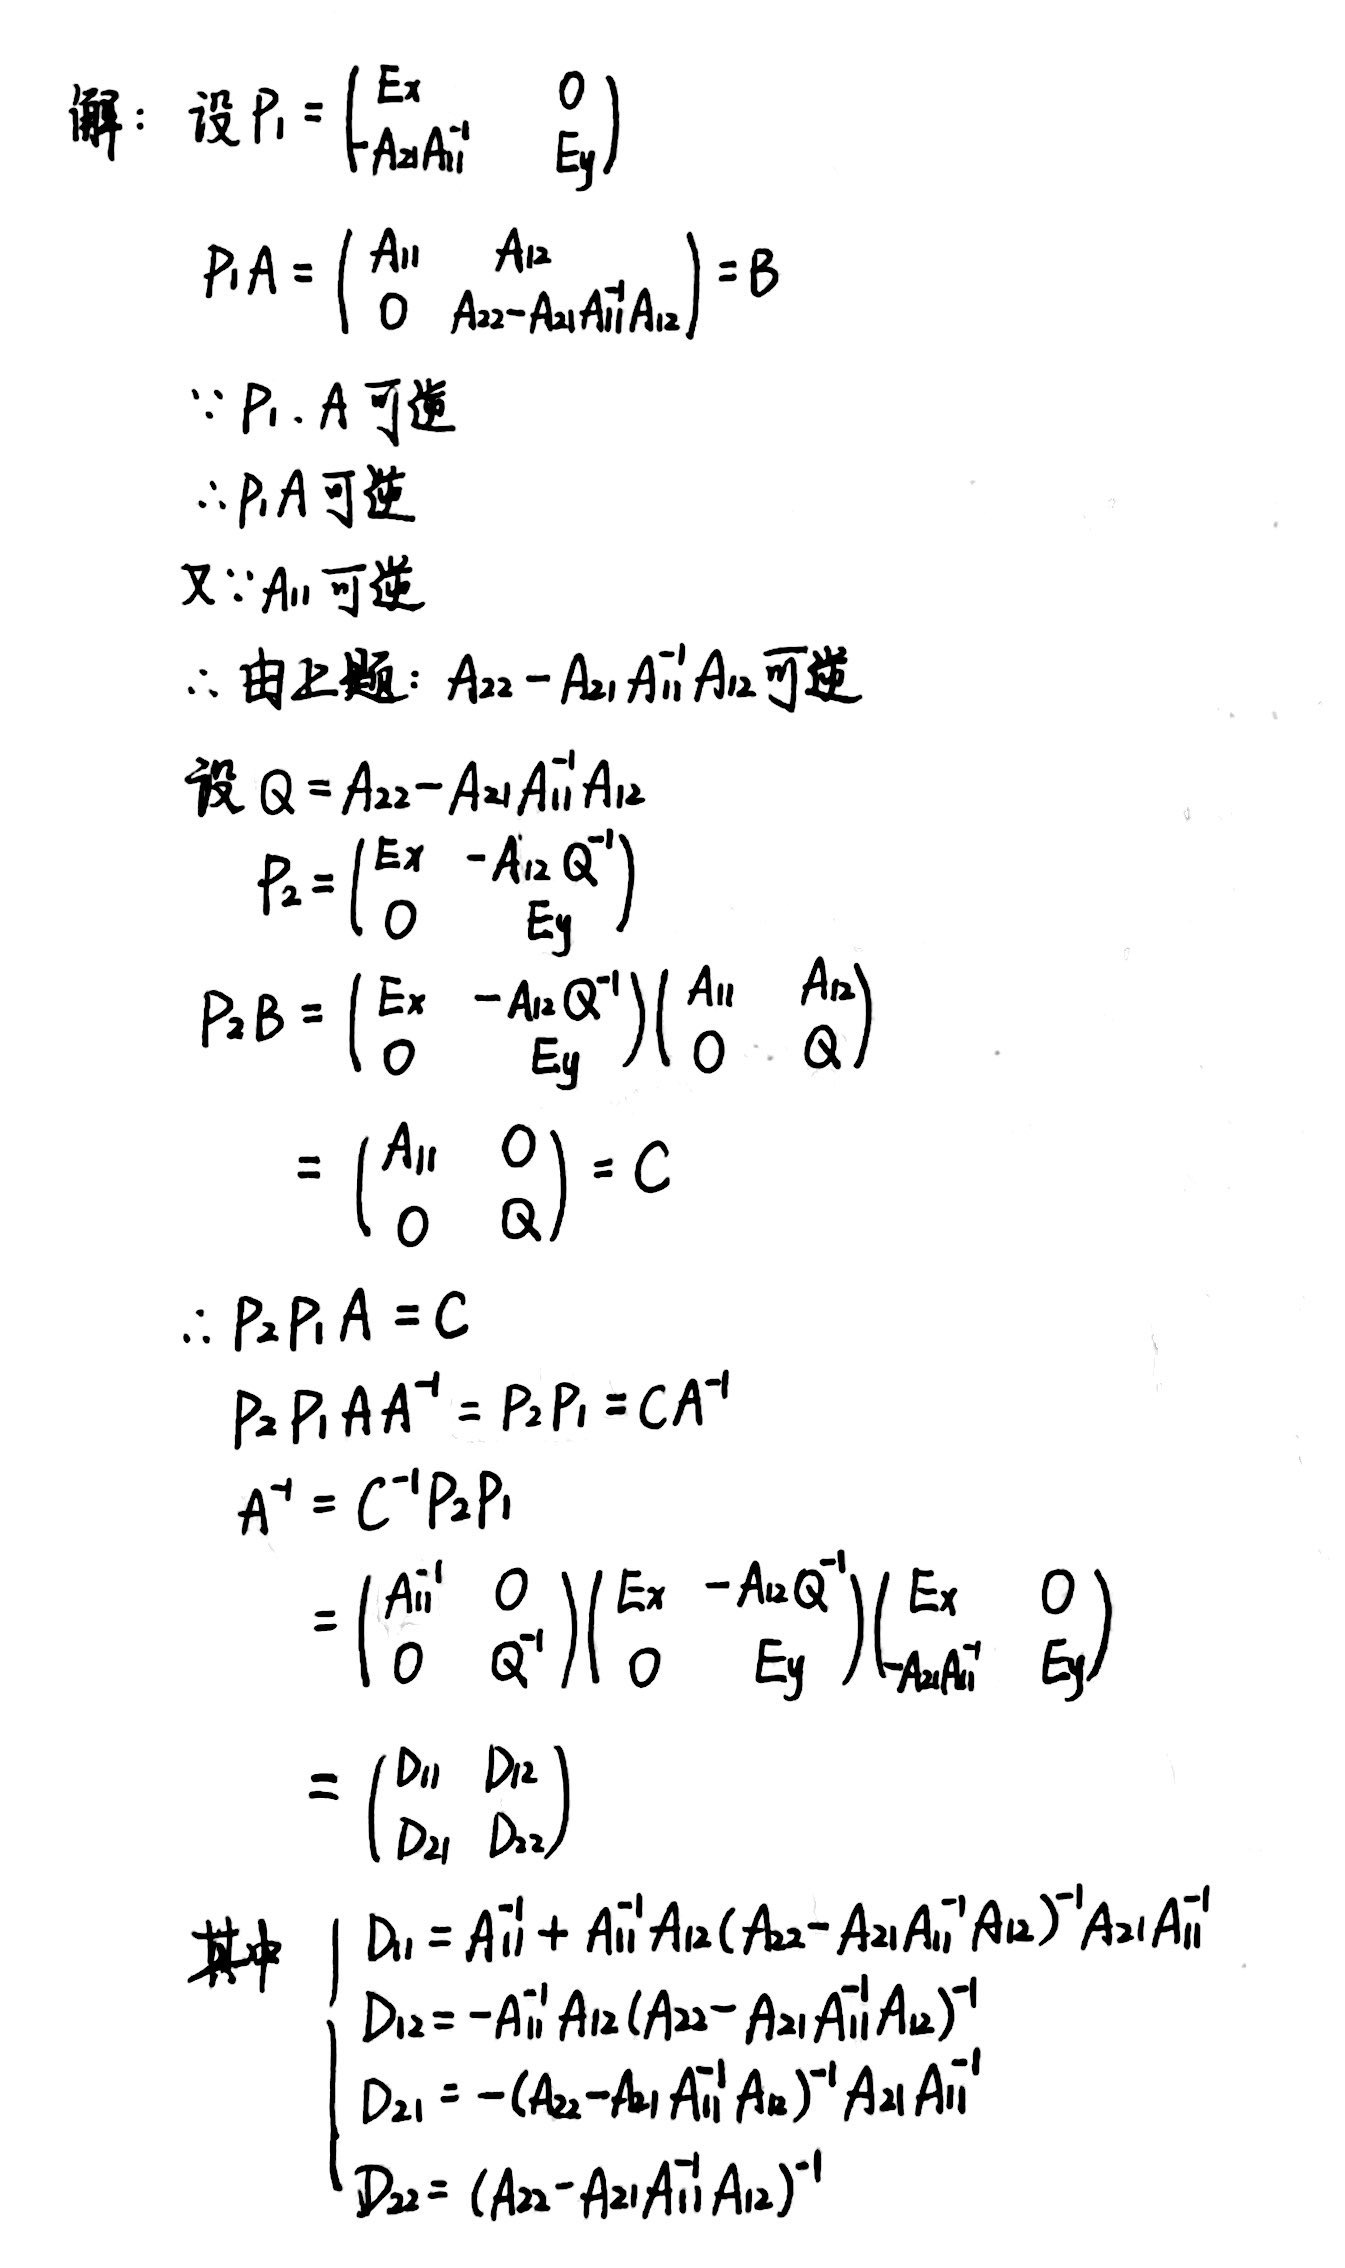 解：设 P₁ = ( Ex  0 ; -A₂₁A₁₁⁻¹  Ey )
P₁A = ( A₁₁  A₁₂ ; 0  A₂₂-A₂₁A₁₁⁻¹A₁₂ ) = B
∵ P₁、A 可逆
∴ P₁A 可逆
又∵ A₁₁ 可逆
∴ 由上题：A₂₂ - A₂₁A₁₁⁻¹A₁₂ 可逆
设 Q = A₂₂ - A₂₁A₁₁⁻¹A₁₂
P₂ = ( Ex  -A₁₂Q⁻¹ ; 0  Ey )
P₂B = ( Ex  -A₁₂Q⁻¹ ; 0  Ey )( A₁₁  A₁₂ ; 0  Q )
= ( A₁₁  0 ; 0  Q ) = C
∴ P₂P₁A = C
P₂P₁AA⁻¹ = P₂P₁ = CA⁻¹
A⁻¹ = C⁻¹P₂P₁
= ( A₁₁⁻¹  0 ; 0  Q⁻¹ )( Ex  -A₁₂Q⁻¹ ; 0  Ey )( Ex  0 ; -A₂₁A₁₁⁻¹  Ey )
= ( D₁₁  D₁₂ ; D₂₁  D₂₂ )
其中 { D₁₁ = A₁₁⁻¹ + A₁₁⁻¹A₁₂(A₂₂-A₂₁A₁₁⁻¹A₁₂)⁻¹A₂₁A₁₁⁻¹
D₁₂ = -A₁₁⁻¹A₁₂(A₂₂-A₂₁A₁₁⁻¹A₁₂)⁻¹
D₂₁ = -(A₂₂-A₂₁A₁₁⁻¹A₁₂)⁻¹A₂₁A₁₁⁻¹
D₂₂ = (A₂₂-A₂₁A₁₁⁻¹A₁₂)⁻¹